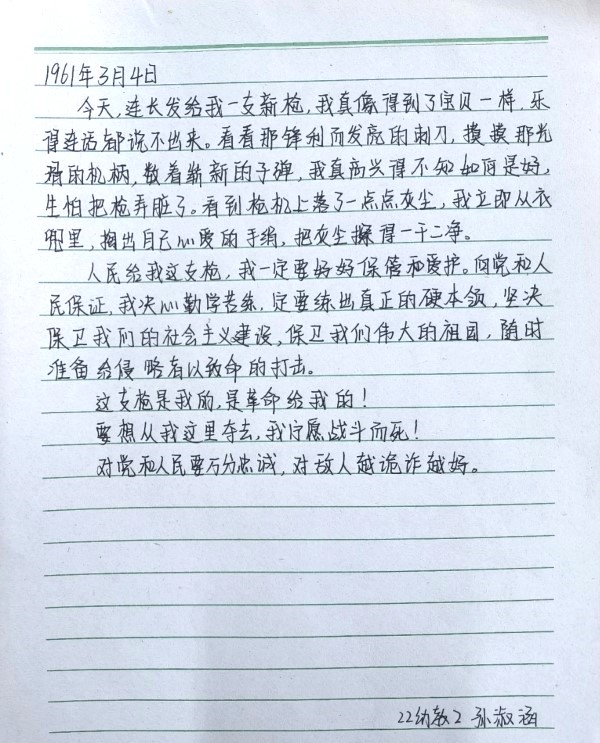 1961年3月4日
今天,连长发给我一支新枪,我真像得到了宝贝一样,乐
得连话都说不出来。看看那锋利而发亮的刺刀,摸摸那光
滑的机柄,数着崭新的子弹,我真高兴得不知如何是好,
生怕把枪弄脏了。看到枪机上落了一点点灰尘,我立即从衣
兜里,掏出自己心爱的手绢,把灰尘擦得一干二净。
人民给我这支枪,我一定要好好保管和爱护。向党和人
民保证,我决心勤学苦练,定要练出真正的硬本领,坚决
保卫我们的社会主义建设,保卫我们伟大的祖国,随时
准备给侵略者以致命的打击。
这支枪是我的,是革命给我的!
要想从我这里夺去,我宁愿战斗而死!
对党和人民要万分忠诚,对敌人越诡诈越好。
22幼教2 孙淑涵